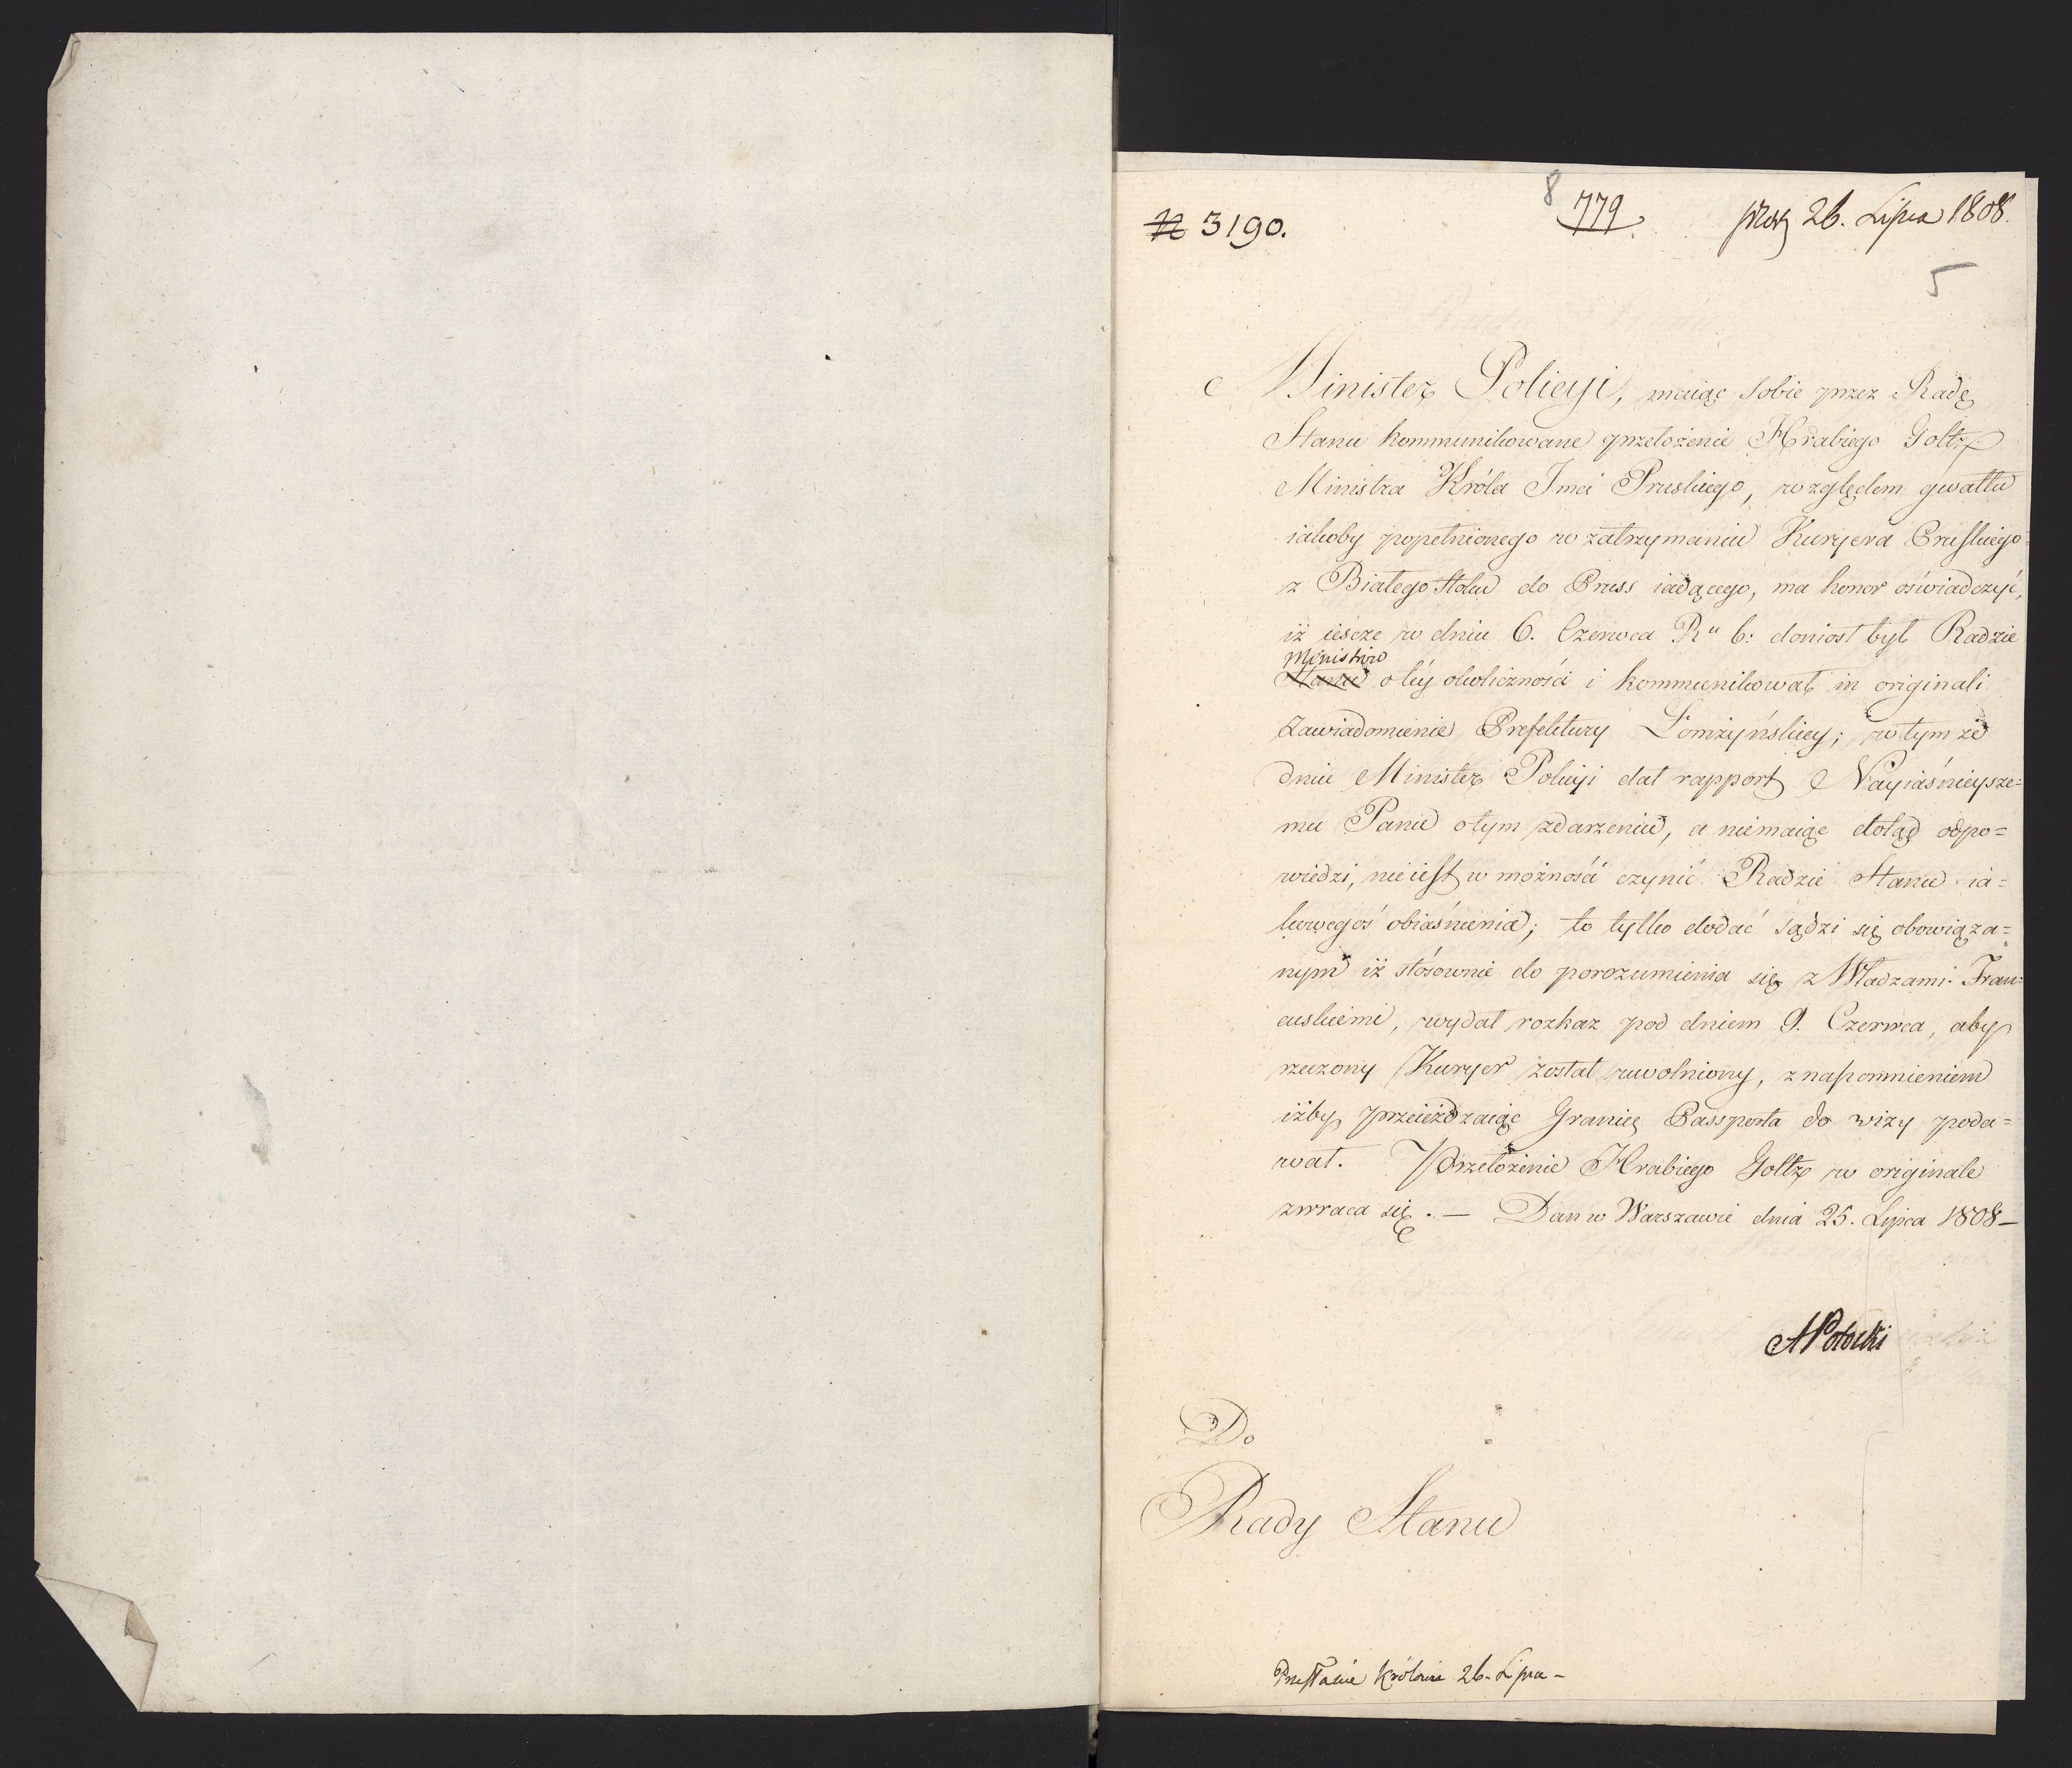 N 3190.
8 779.
prez 26. Lipca 1808.
5
Minister Policyi, maiąc sobie przez Radę
Stanu kommunikowane przełożenie Hrabiego Goltz
Ministra Króla Jmci Pruskiego, względem gwałtu
iakoby popełnionego w zatrzymaniu Kuryera Pruskiego
z Białegostoku do Pruss iadącego, ma honor oświadczyć,
iż iescze w dniu 6. Czerwca R u b: doniosł był Radzie
Ministrów
Stanu o téy okoliczności i kommunikował in originali
zawiadomienie Prefektury Łomżyńskiey; w tym że
dniu Minister Policyi dał rapport Nayiaśnieysze=
mu Panu o tym zdarzeniu, a niemaiąc dotąd odpo=
wiedzi, nie iest w możności czynić Radzie Stanu ia=
kowegoś obiaśnienia; to tylko dodać sądzi się obowiąza=
nym iż stósownie do porozumienia się z Władzami Fran=
cuskiemi, wydał rozkaz pod dniem 9. Czerwca, aby
rzeczony Kuryer został uwolniony, z napomnieniem
iżby przeieżdzaiąc Granicę Passporta do wizy poda=
wał. Przełożenie Hrabiego Goltz w originale
zwraca się. — Dan w Warszawie dnia 25. Lipca 1808 —
APotocki
Do
Rady Stanu
Przesłanie Królowi 26. Lipca –